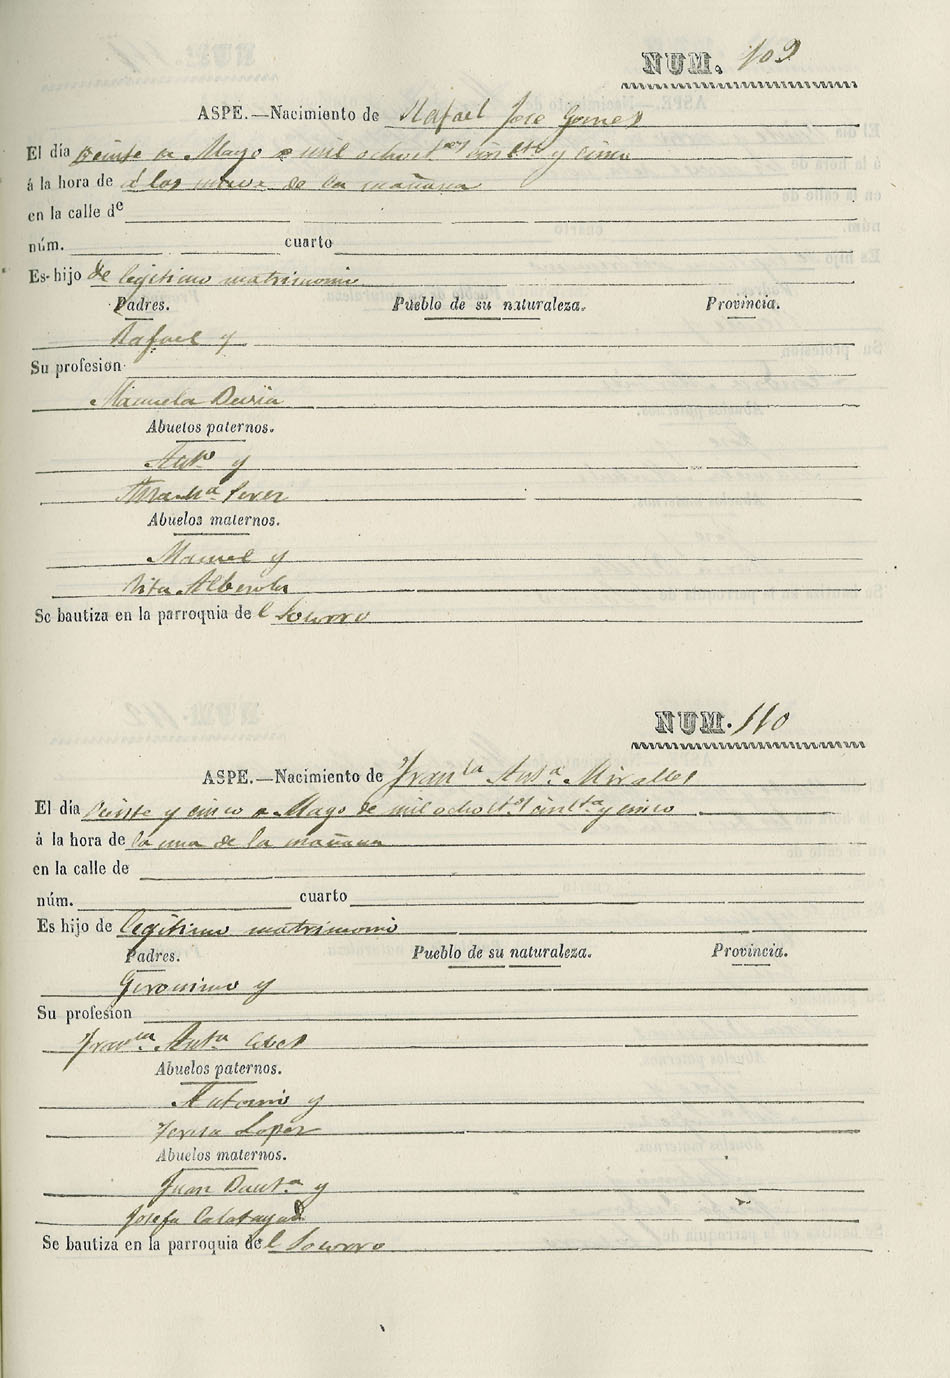 NUM. 109
ASPE.—Nacimiento de Rafael Jose Gomes
El día veinte de Mayo de mil ochoctos cincta y cinco
á la hora de á las nueve de la mañana
en la calle de
núm. cuarto
Es hijo de legitimo matrimonio
Padres. Pueblo de su naturaleza. Provincia.
Rafael y
Su profesion
Manuela
Abuelos paternos.
Anto y
Abuelos maternos.
Manuel y
Rita Alberola
Se bautiza en la parroquia del Socorro
NUM. 110
ASPE.—Nacimiento de Franca Anta Miralles
El día veinte y cinco de Mayo de mil ochoctos cincta y cinco
á la hora de la una de la mañana
en la calle de
núm. cuarto
Es hijo de legitimo matrimonio
Padres. Pueblo de su naturaleza. Provincia.
Geronimo y
Su profesion
Franca Anta
Abuelos paternos.
Antonio y
Teresa Lopez
Abuelos maternos.
Juan Bauta y
Josefa Calatayud
Se bautiza en la parroquia del Socorro